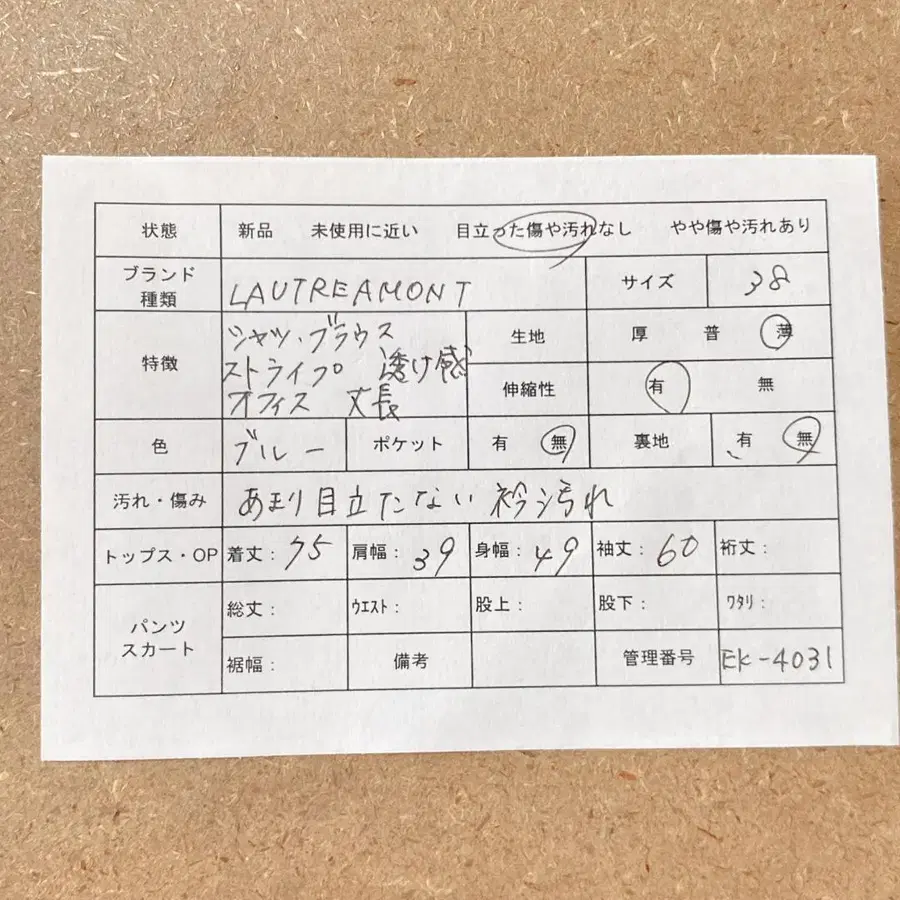 状態 新品 未使用に近い 目立った傷や汚れなし やや傷や汚れあり
ブランド 種類 LAUTREAMONT サイズ 38
特徴 シャツ・ブラウス
ストライプ 透け感
オフィス 丈長
生地 厚 普 薄
伸縮性 有 無
色 ブルー ポケット 有 無 裏地 有 無
汚れ・傷み あまり目立たない衿汚れ
トップス・OP 着丈: 75 肩幅: 39 身幅: 49 袖丈: 60 裄丈:
パンツ スカート 総丈: ウエスト: 股上: 股下: ワタリ:
裾幅: 備考 管理番号 EK-4031